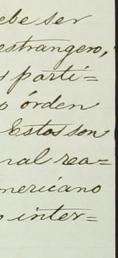 ebe ser
estrangero,
s parti=
o órden
Estos son
nal rea=
mericano
o inter=